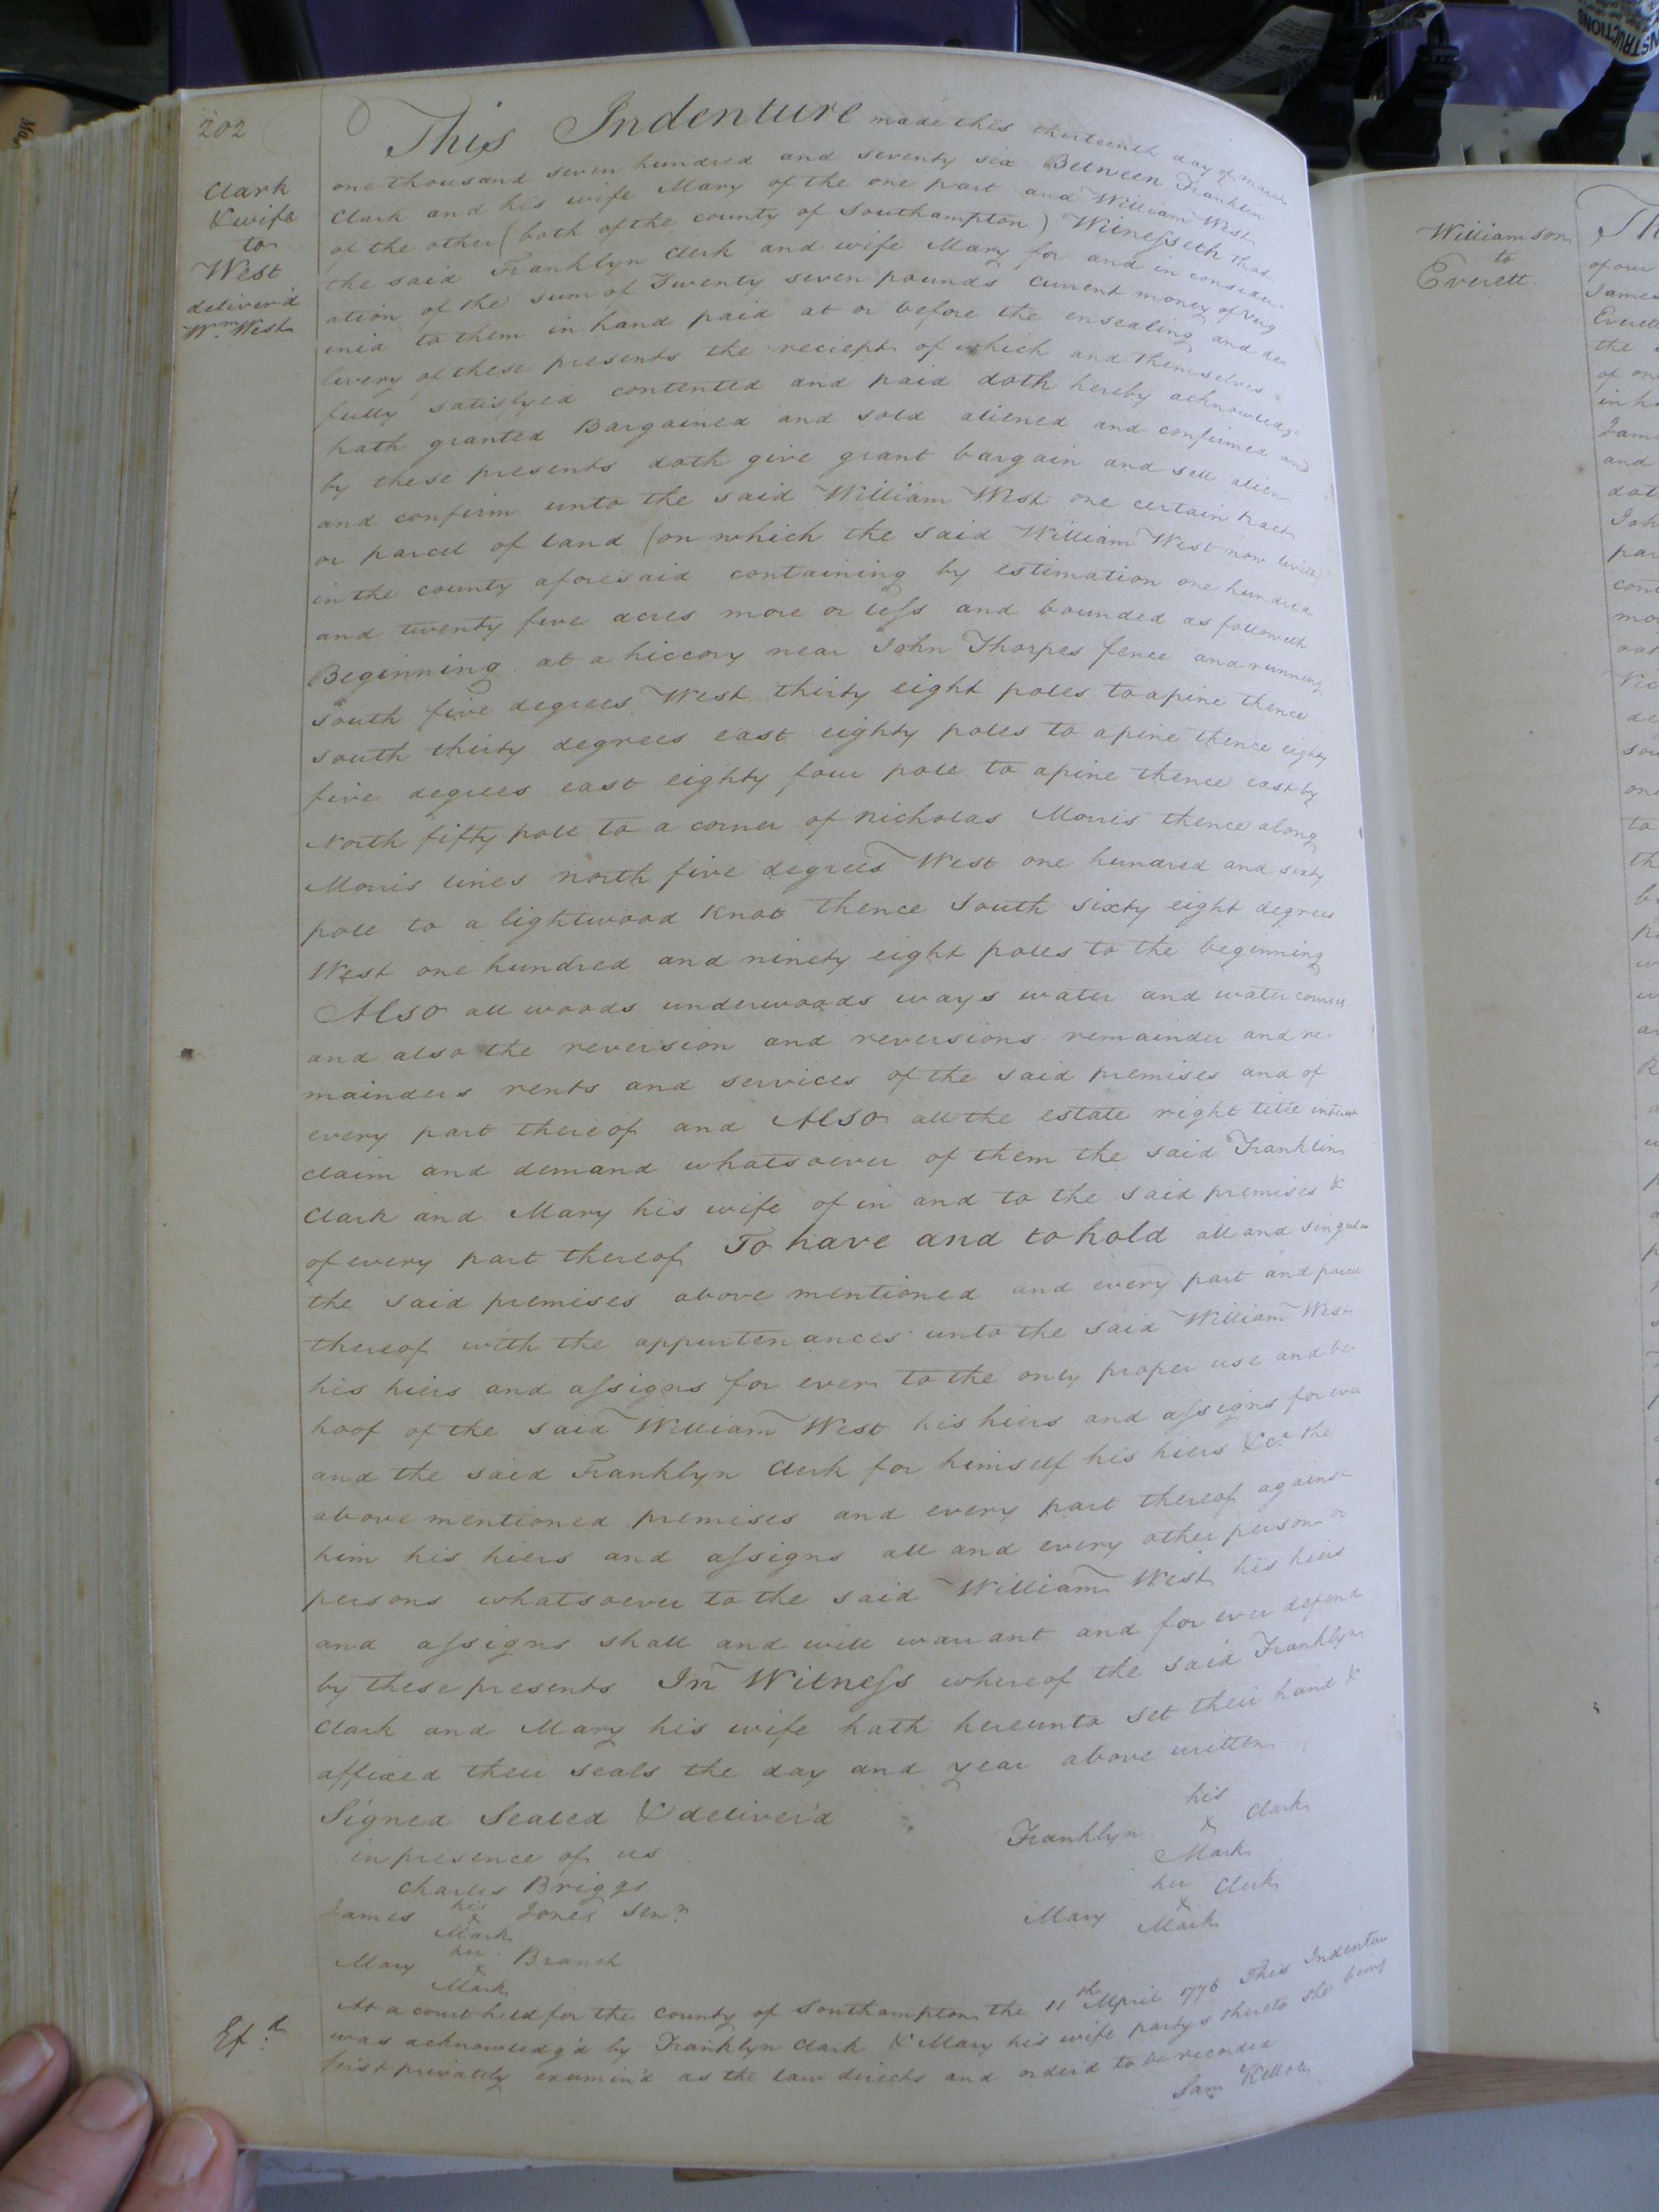 202
Clark
& wife
to
West
deliver'd
Wm. West
This Indenture made this thirteenth day of march
one thousand seven hundred and seventy six Between Franklin
Clark and his wife Mary of the one part and William West
of the other (both of the county of Southampton) Witnesseth that
the said Franklyn Clerk and wife Mary for and in consider-
ation of the sum of Twenty seven pounds Current money of Virg
inia to them in hand paid at or before the ensealing and de
livery of these presents the reciept of which and themselves
fully satisfyed contented and paid doth hereby acknowledge
hath granted Bargained and sold aliened and confirmed and
by these presents doth give grant bargain and sell alien
and confirm unto the said William West one certain tract
or parcel of land (on which the said William West now lives)
in the county aforesaid containing by estimation one hundred
and twenty five acres more or less and bounded as followeth
Beginning at a hiccory near John Thorpes fence and running
South five degrees West thirty eight poles to a pine thence
south thirty degrees east eighty poles to a pine thence eighty
five degrees east eighty four pole to a pine thence east by
North fifty pole to a corner of Nicholas Morris thence along
Morris lines north five degrees West one hundred and sixty
pole to a lightwood knot thence South sixty eight degrees
West one hundred and ninety eight poles to the beginning
Also all woods underwoods ways water and water courses
and also the reversion and reversions remainder and re-
mainders rents and services of the said premises and of
every part thereof and Also all the estate right title interest
claim and demand whatsoever of them the said Franklin
Clark and Mary his wife of in and to the said premises &
of every part thereof To have and to hold all and singular
the said premises above mentioned and every part and parcel
thereof with the appurtenances unto the said William West
his hiers and assigns for ever to the only proper use and be
hoof of the said William West his hiers and assigns for ever
and the said Franklyn Clerk for himself his hiers &c. the
above mentioned premises and every part thereof against
him his hiers and assigns all and every other person or
persons whatsoever to the said William West his hiers
and assigns shall and will warrant and for ever defend
by these presents In Witness whereof the said Franklyn
Clark and Mary his wife hath hereunto set their hand &
affixed their seals the day and year above written
Signed Sealed & deliver'd
in presence of us
Charles Briggs
James his x Mark Jones Senr.
Mary her x Mark Branch
Franklyn his x Mark Clark
Mary her x Mark Clerk
At a court held for the county of Southampton the 11th April 1776 This Indenture
was acknowledg'd by Franklyn Clark & Mary his wife partys thereto she being
first privately examin'd as the law directs and order'd to be recorded
Sam Kello
Williamson
to
Everett
Th
of our
James
Everett
the
of on
in h
Jam
and
dot
Joh
par
cont
mo